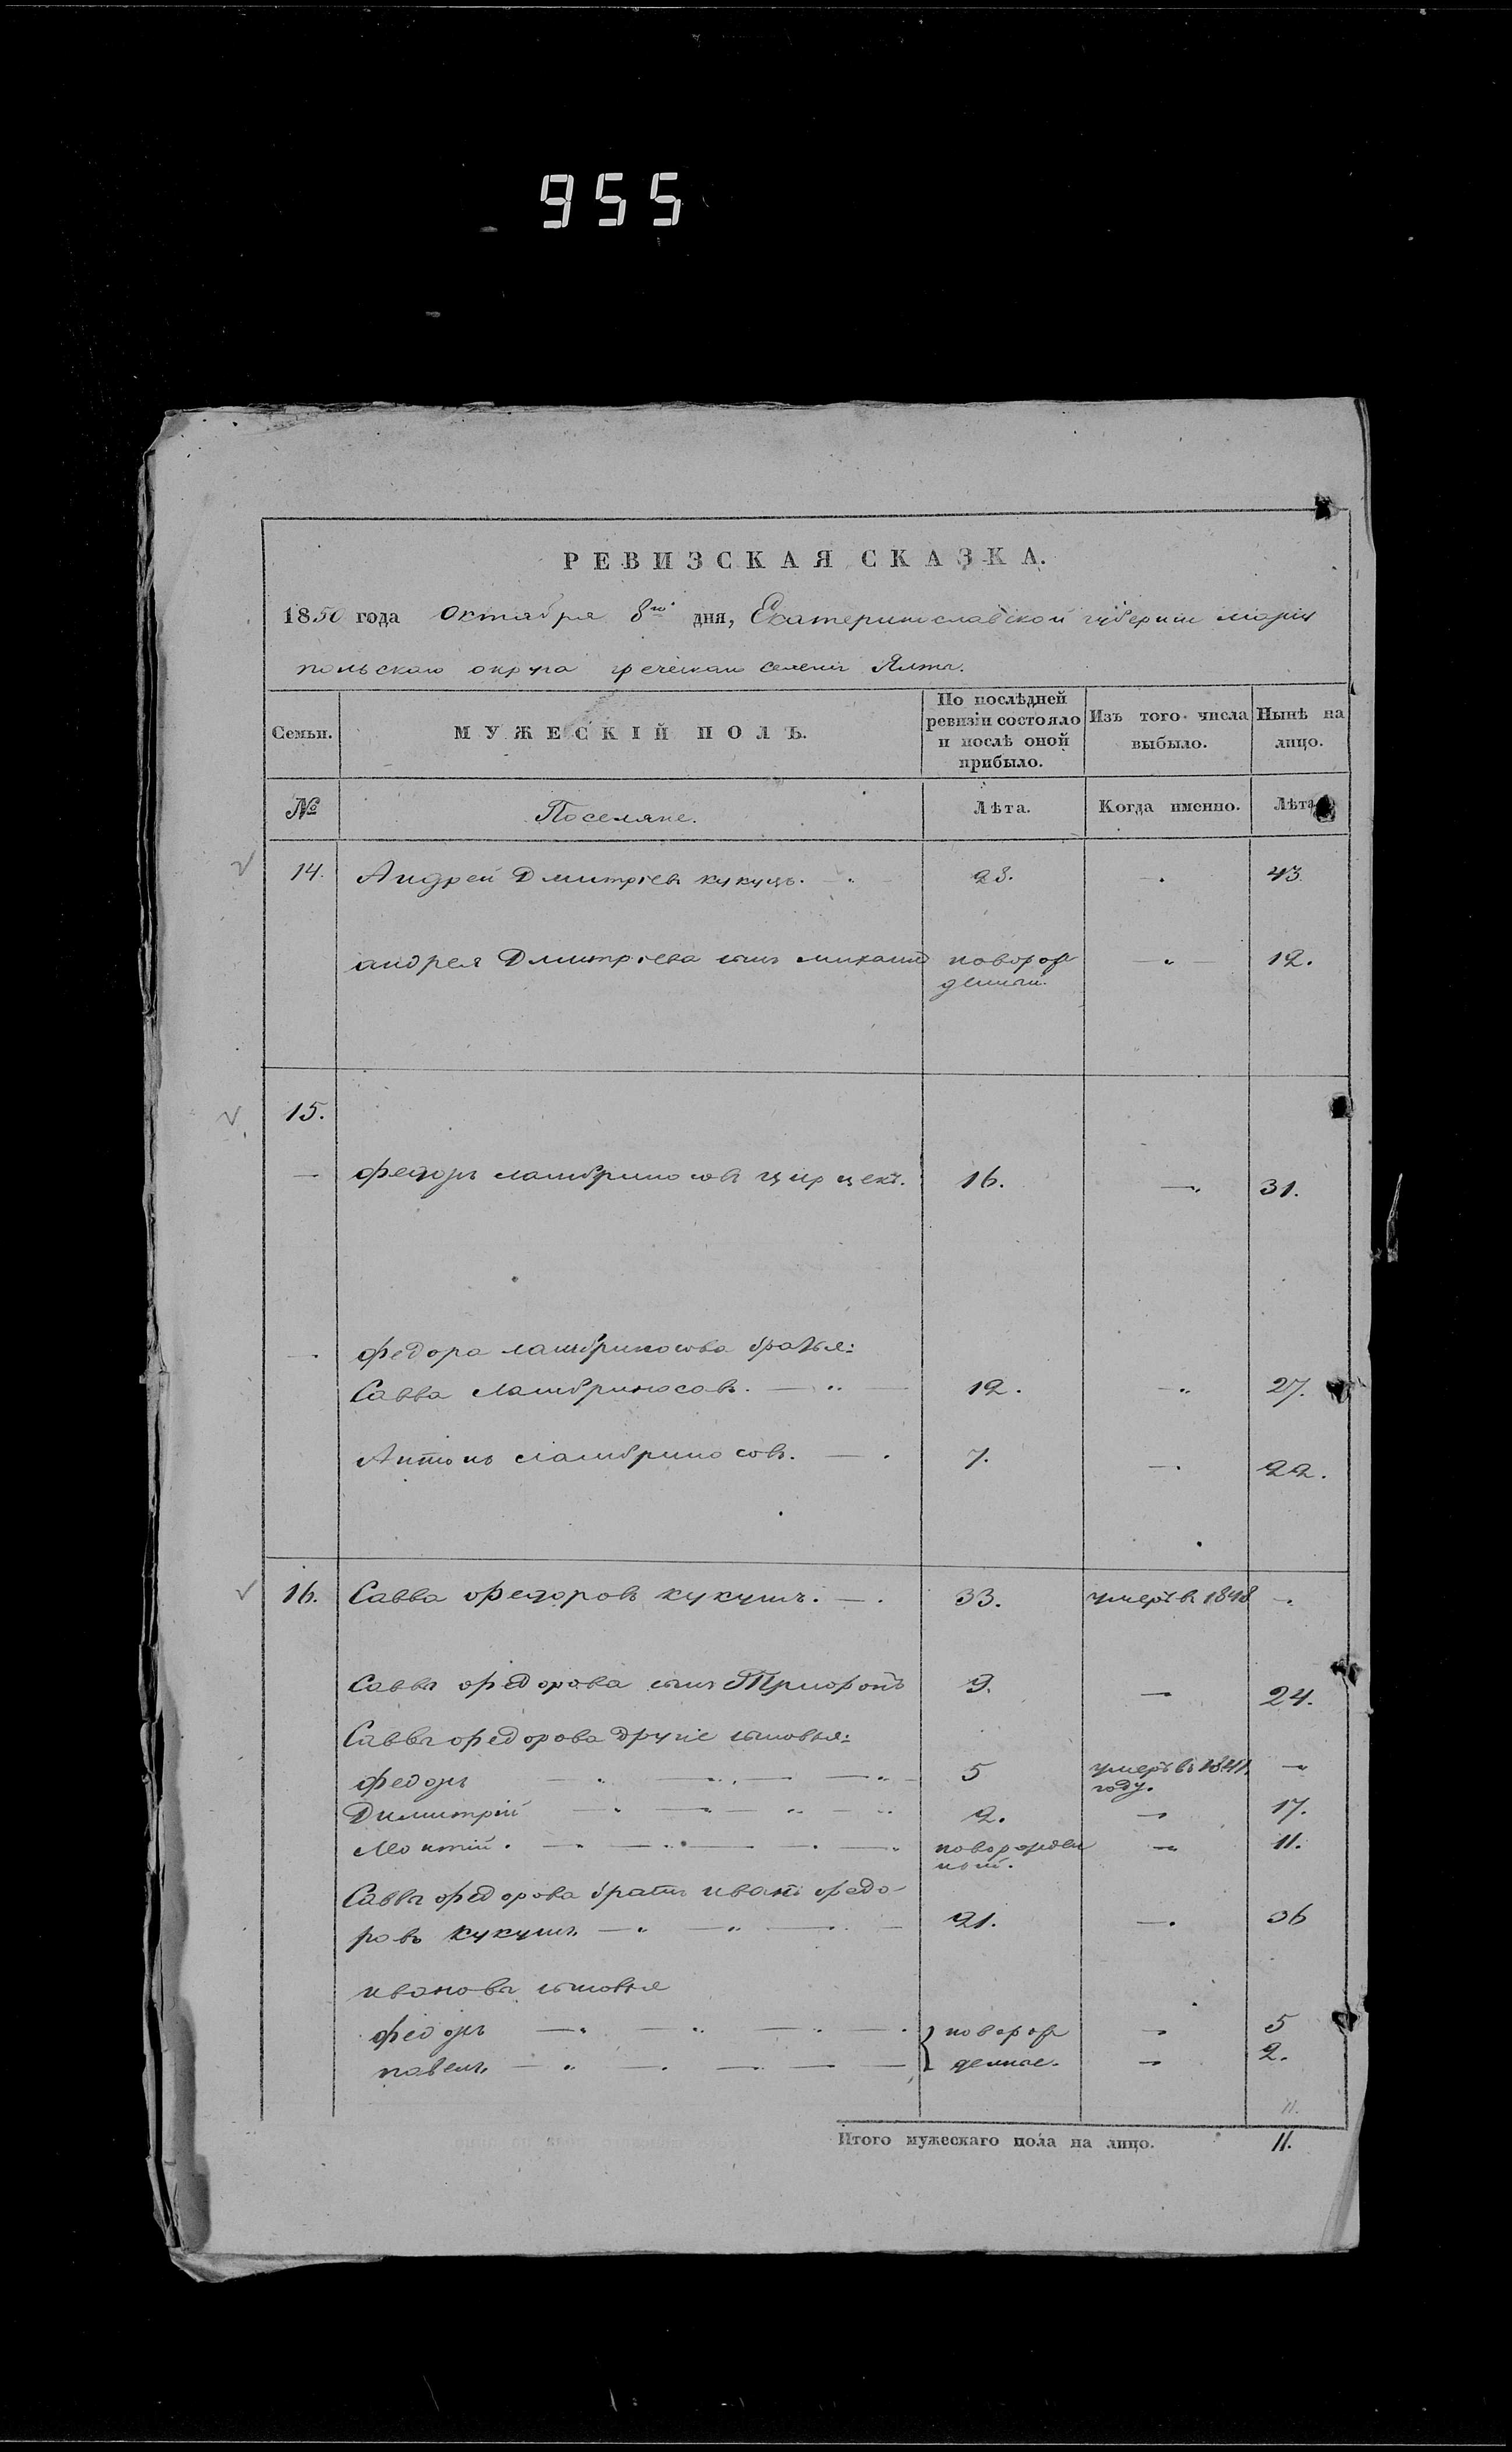 955
РЕВИЗСКАЯ СКАЗКА.
1850 года Октября 8го дня, Екатеринославской губернии мариу
польскаго округа греческаго селения Ялты.
Семьи.
МУЖЕСКІЙ ПОЛЪ.
По послѣдней
ревизіи состояло
и послѣ оной
прибыло.
Изъ того числа
выбыло.
Нынѣ на
лицо.
№ Поселяне. Лѣта. Когда именно. Лѣта
14. Андрей Дмитріевъ кукушъ. 28. 43
андрея Дмитріева сынъ михаилъ новорож 12.
денный.
15.
федоръ ламбриносовъ 16. 31.
федора ламбриносова братья:
Савва Ламбриносовъ. 12. 27.
Антонъ Ламбриносовъ. 7. 22.
16. Савва федоровъ кукушъ. 33. умеръ въ 1848
Саввы федорова сынъ Трифонъ 9. 24.
Саввы федорова другіе сыновья:
федоръ 5 умеръ въ 1841
году.
Димитрій 2. 17.
Леонтій. новорожден 11.
ный.
Саввы федорова братъ иванъ федо
ровъ кукушъ 21. 36
ивановы сыновья
федоръ новорож 5
павелъ денные. 2.
11.
Итого мужескаго пола на лицо. 11.